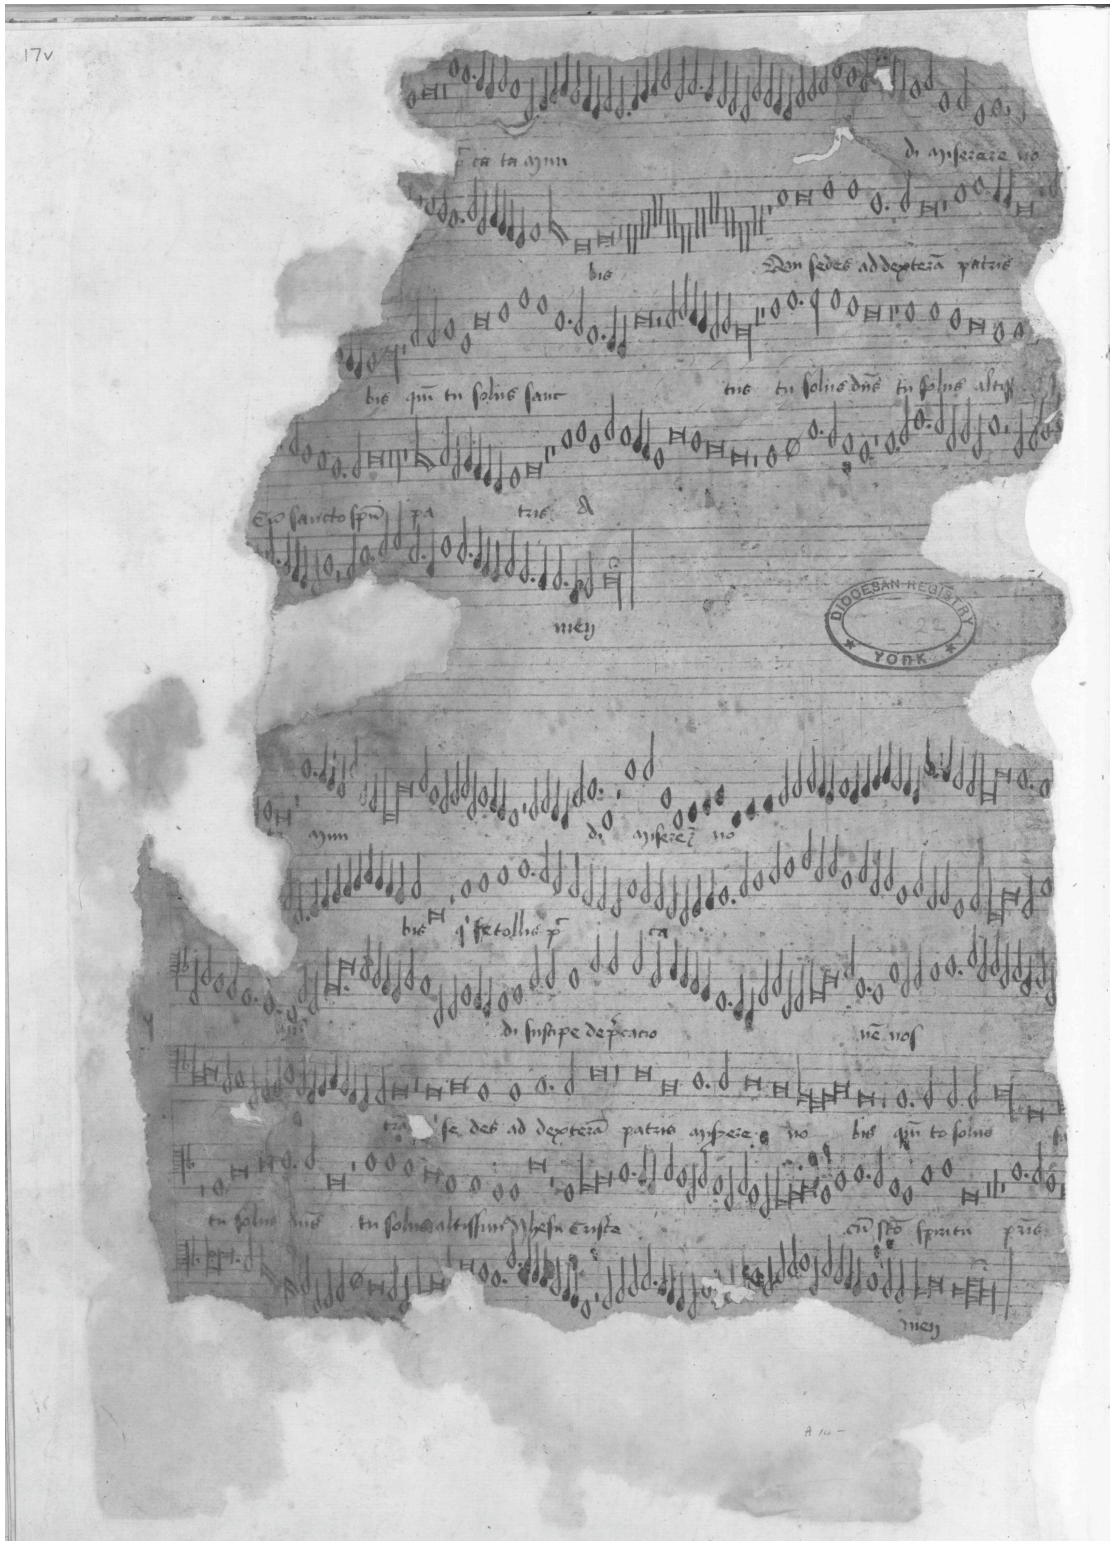 17v
ca ta mun di miserere no
bis Qui sedes ad dexterā patris
bis qm̄ tu solus sanc tus tu solus dn̄s tu solus altis
Cū sancto spū pa tris A
men
DIOCESAN REGISTRY
22
YORK
mun di miserer no
bis q' tollis p ca
di suscipe depcacio nē nos
trā se des ad dexterā patris misere no bis qm̄ to solus
tu solus dn̄s tu solus altissim' Jhesu criste cū sto spiritu pris
men